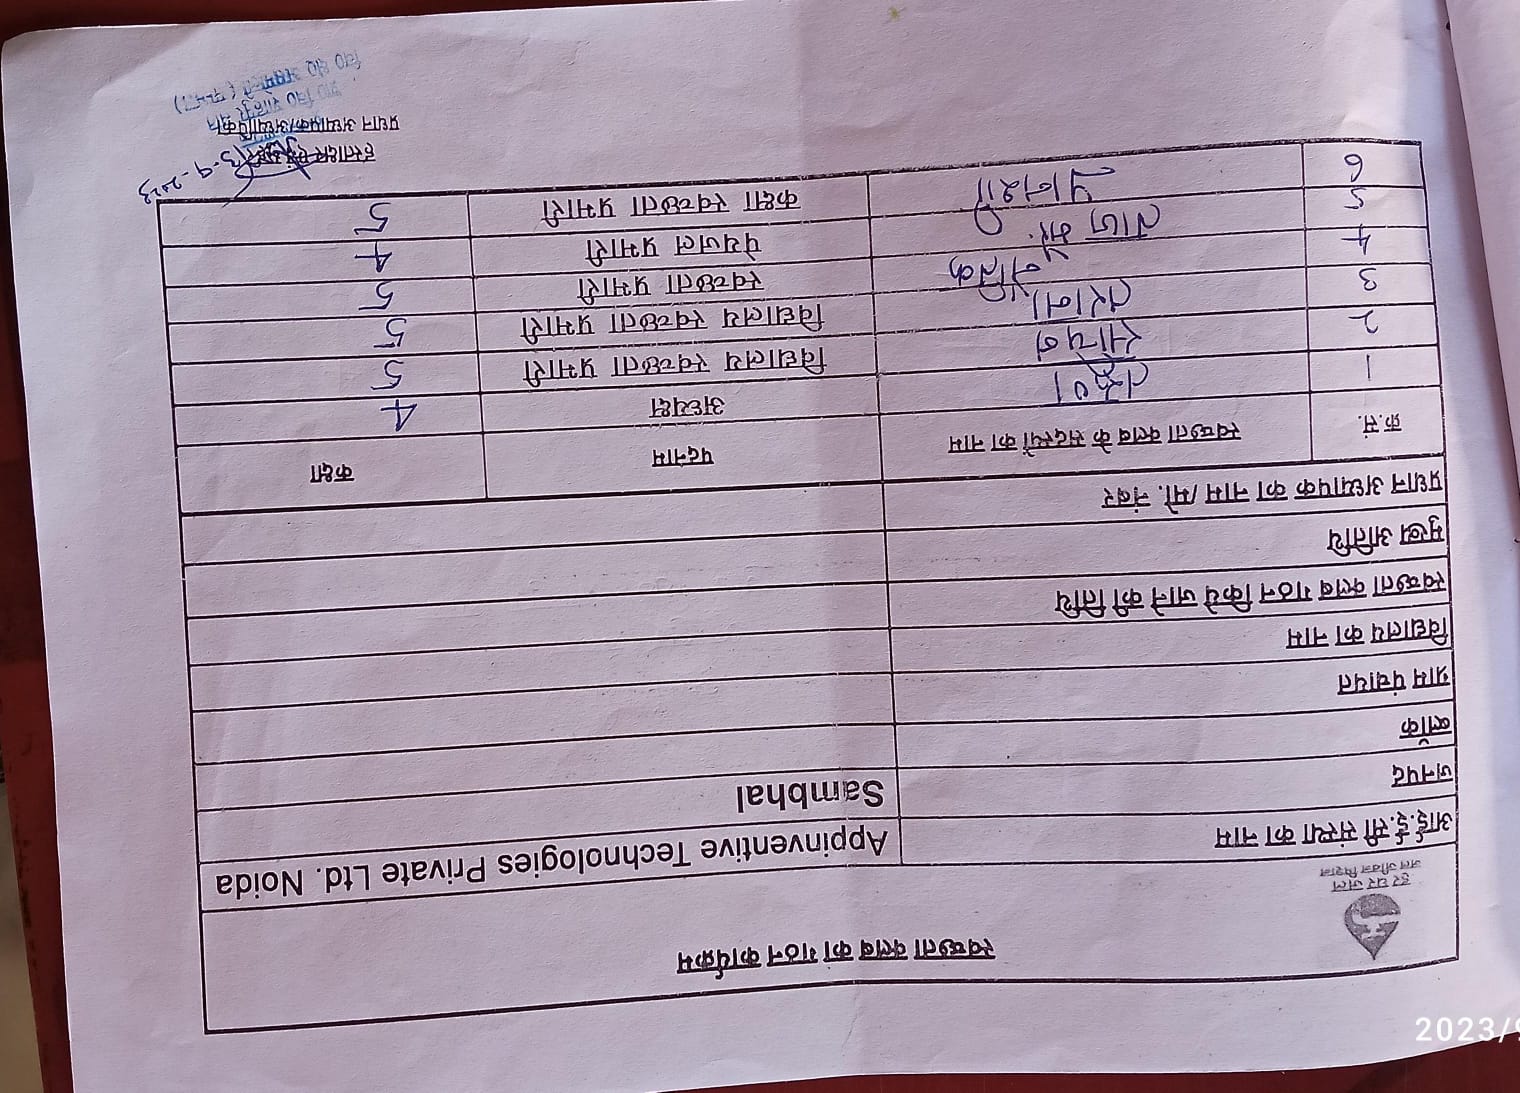 स्वच्छता क्लब का गठन कार्यक्रम
हर घर जल
जल जीवन मिशन
आई.ई.सी संस्था का नाम Appinventive Technologies Private Ltd. Noida
जनपद Sambhal
ब्लॉक
ग्राम पंचायत
विद्यालय का नाम
स्वच्छता क्लब गठन किये जाने की तिथि
मुख्य अतिथि
प्रधान अध्यापक का नाम/मो. नंबर
क्र.सं. स्वच्छता क्लब के सदस्यों का नाम पदनाम कक्षा
1 अध्यक्ष 4
2 विद्यालय स्वच्छता प्रभारी 5
3 विद्यालय स्वच्छता प्रभारी 5
4 स्वच्छता प्रभारी 5
5 पेयजल प्रभारी 4
6 कक्षा स्वच्छता प्रभारी 5
हस्ताक्षर एवं मुहर 5-9-2023
प्रधान अध्यापक/अध्यापिका
2023/9